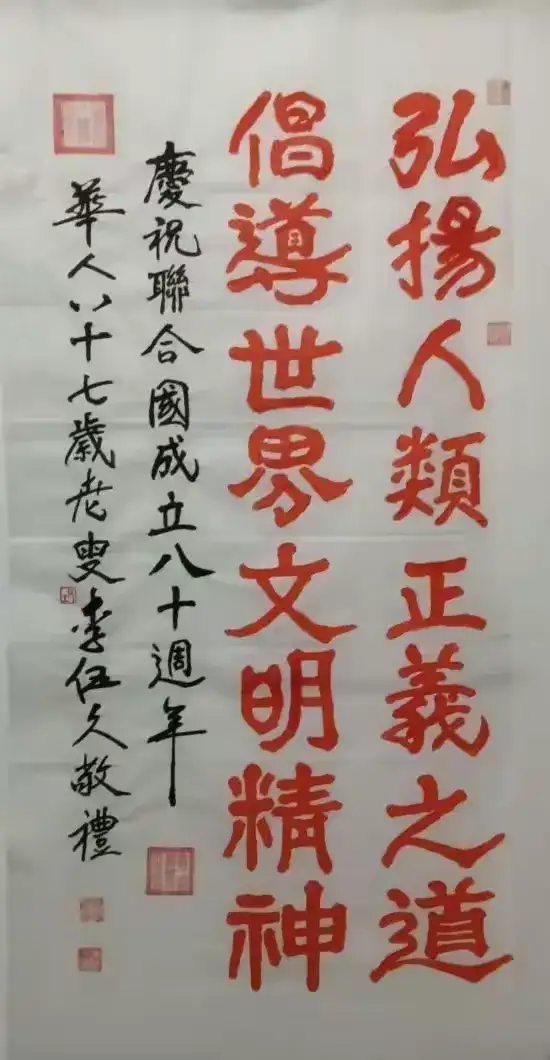 弘揚人類正義之道
倡導世界文明精神
慶祝聯合國成立八十週年
華人八十七歲老叟李伍久敬禮